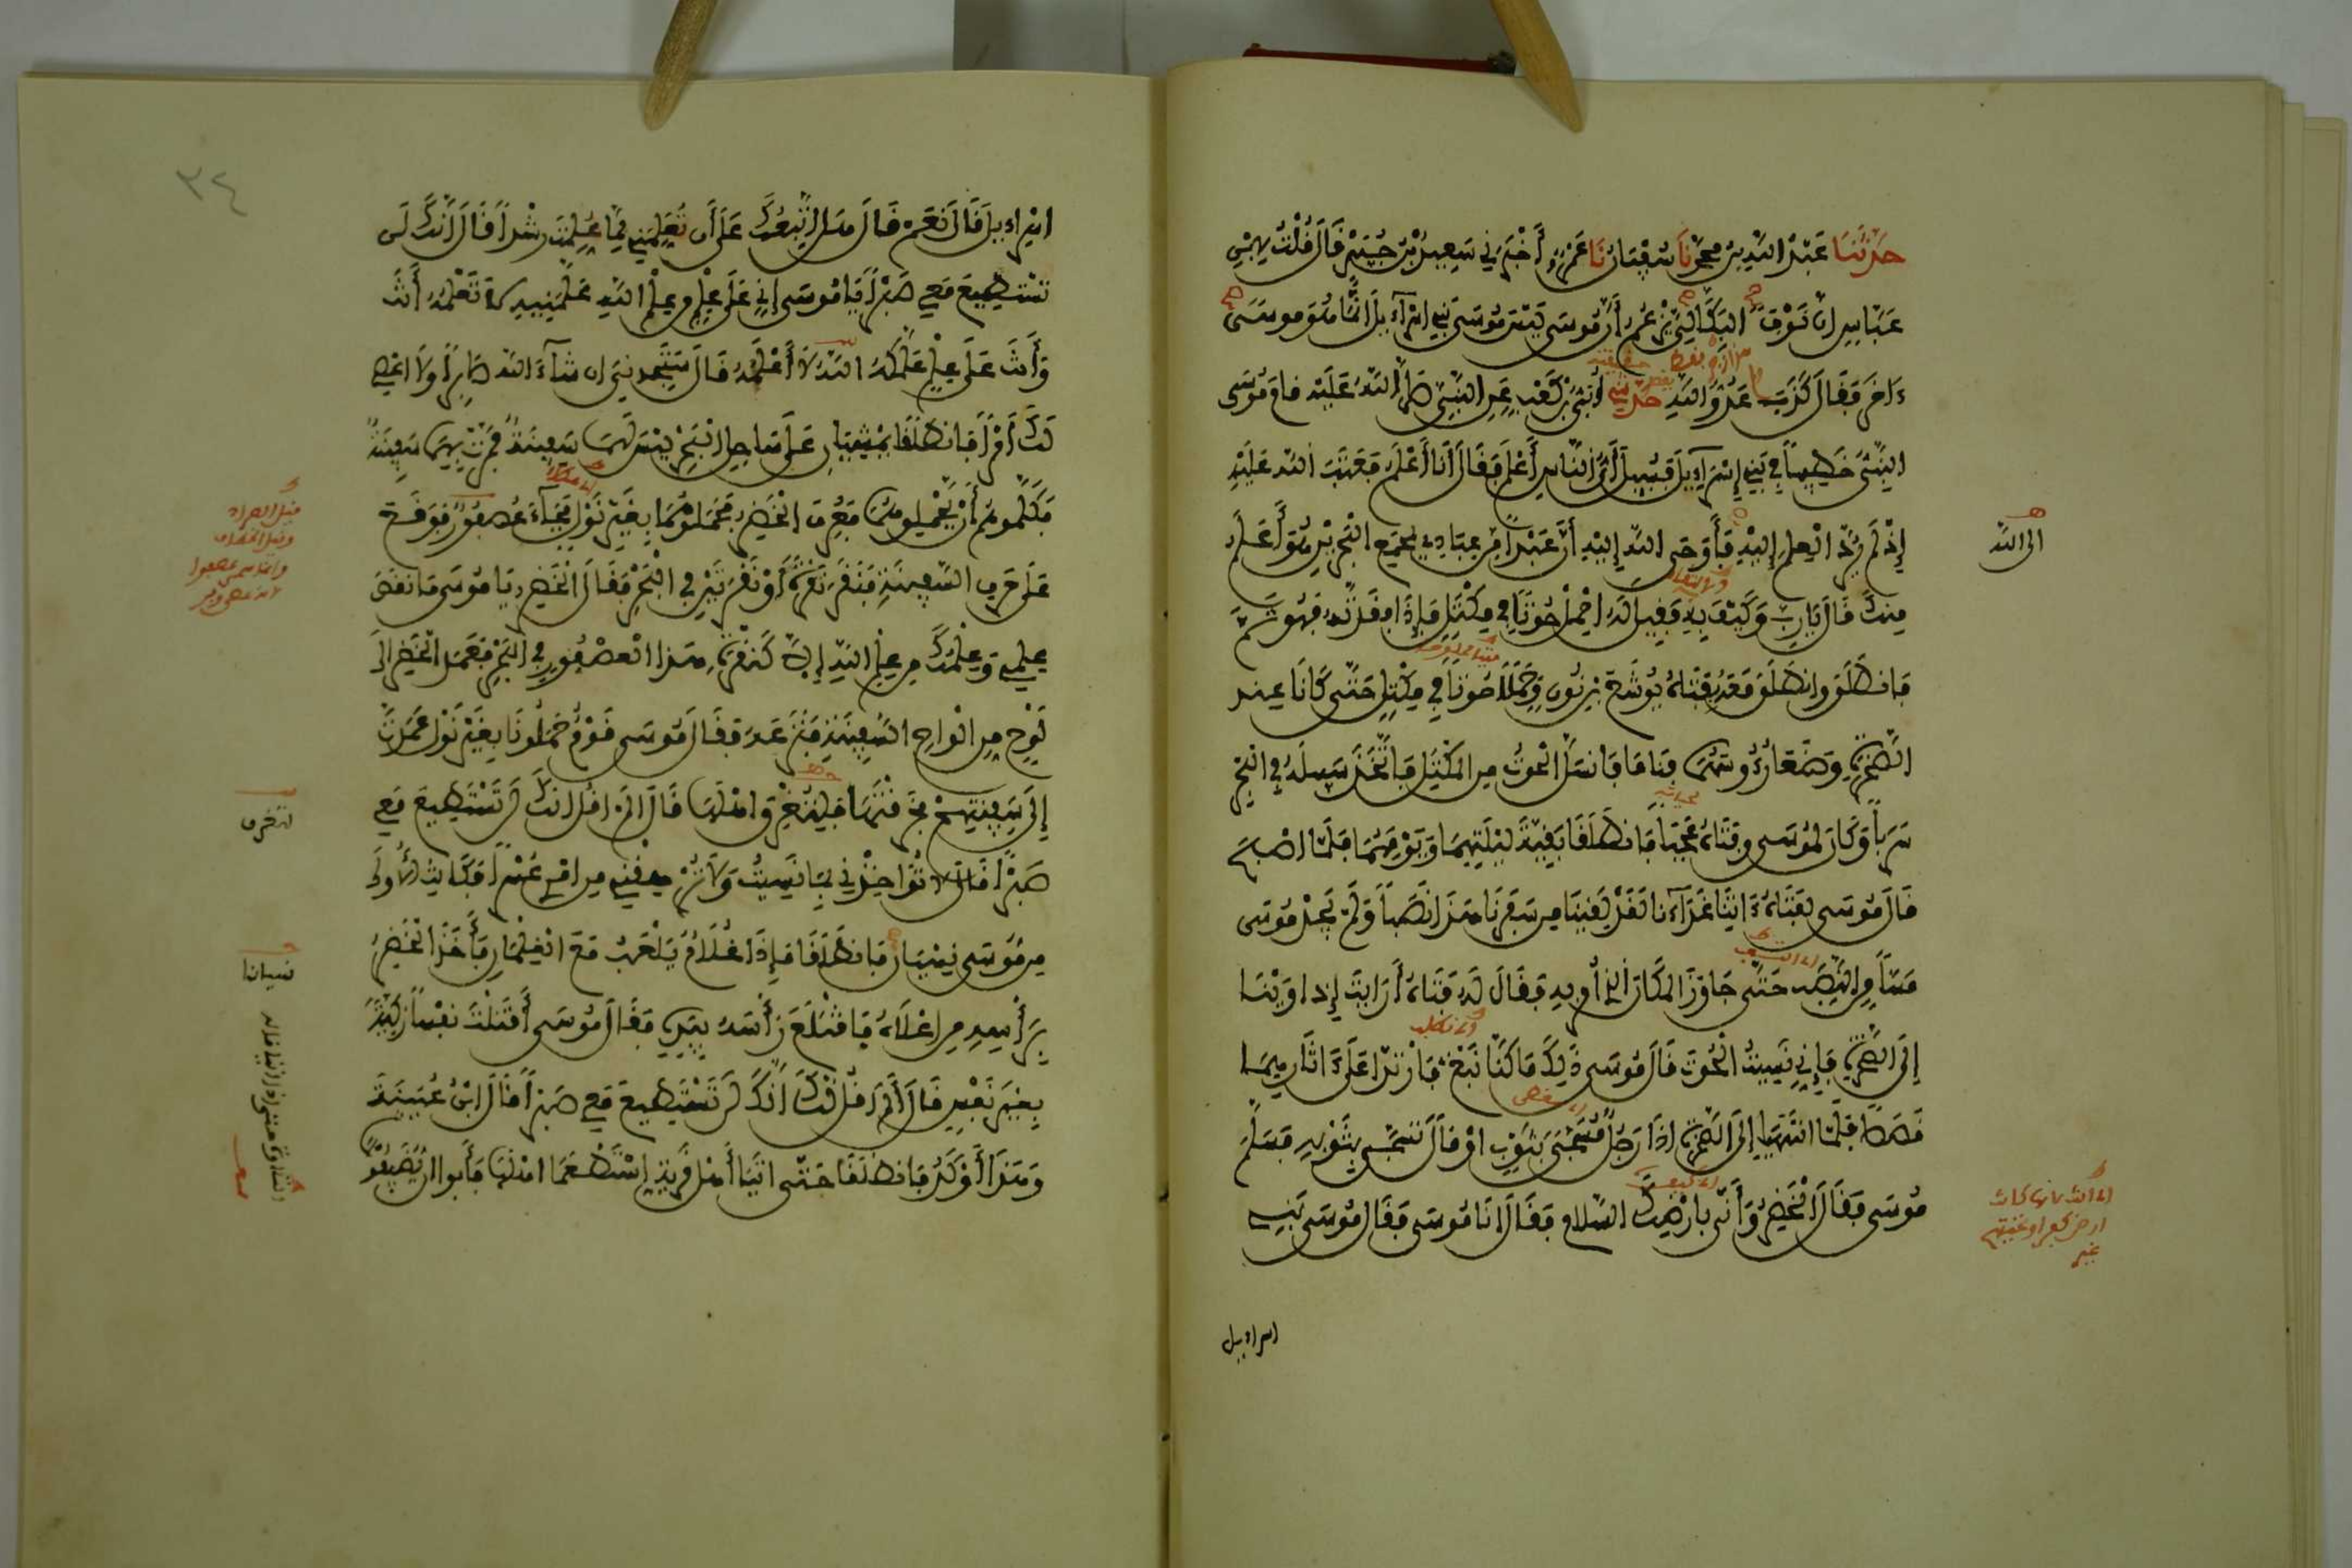 حَدَّثَنَا عَبْدُ اللَّهِ بْنُ مُحَمَّدٍ نَا سُفْيَانُ نَا عَمْرٌو أَخْبَرَنِي سَعِيدُ بْنُ جُبَيْرٍ قَالَ قُلْتُ لِابْنِ
عَبَّاسٍ إِنَّ نَوْفًا الْبَكَالِيَّ يَزْعُمُ أَنَّ مُوسَى لَيْسَ مُوسَى بَنِي إِسْرَاءِيلَ إِنَّمَا هُوَ مُوسَى
ءَاخَرُ فَقَالَ كَذَبَ عَدُوُّ اللَّهِ حَدَّثَنِي أُبَيُّ بْنُ كَعْبٍ عَنِ النَّبِيِّ صَلَّى اللَّهُ عَلَيْهِ قَامَ مُوسَى
النَّبِيُّ خَطِيبًا فِي بَنِي إِسْرَاءِيلَ فَسُئِلَ أَيُّ النَّاسِ أَعْلَمُ فَقَالَ أَنَا أَعْلَمُ فَعَتَبَ اللَّهُ عَلَيْهِ
إِذْ لَمْ يَرُدَّ الْعِلْمَ إِلَيْهِ فَأَوْحَى اللَّهُ إِلَيْهِ أَنَّ عَبْدًا مِنْ عِبَادِي بِمَجْمَعِ الْبَحْرَيْنِ هُوَ أَعْلَمُ
مِنْكَ قَالَ يَا رَبِّ وَكَيْفَ بِهِ فَقِيلَ لَهُ احْمِلْ حُوتًا فِي مِكْتَلٍ فَإِذَا فَقَدْتَهُ فَهُوَ ثَمَّ
فَانْطَلَقَ وَانْطَلَقَ مَعَهُ بِفَتَاهُ يُوشَعَ بْنِ نُونٍ وَحَمَلَا حُوتًا فِي مِكْتَلٍ حَتَّى كَانَا عِنْدَ
الصَّخْرَةِ وَضَعَا رُءُوسَهُمَا فَنَامَا فَانْسَلَّ الْحُوتُ مِنَ الْمِكْتَلِ فَاتَّخَذَ سَبِيلَهُ فِي الْبَحْرِ
سَرَبًا وَكَانَ لِمُوسَى وَفَتَاهُ عَجَبًا فَانْطَلَقَا بَقِيَّةَ لَيْلَتِهِمَا وَيَوْمَهُمَا فَلَمَّا أَصْبَحَ
قَالَ مُوسَى لِفَتَاهُ ءَاتِنَا غَدَاءَنَا لَقَدْ لَقِينَا مِنْ سَفَرِنَا هَذَا نَصَبًا وَلَمْ يَجِدْ مُوسَى
مَسًّا مِنَ النَّصَبِ حَتَّى جَاوَزَ الْمَكَانَ الَّذِي أُمِرَ بِهِ فَقَالَ لَهُ فَتَاهُ أَرَأَيْتَ إِذْ أَوَيْنَا
إِلَى الصَّخْرَةِ فَإِنِّي نَسِيتُ الْحُوتَ قَالَ مُوسَى ذَلِكَ مَا كُنَّا نَبْغِ فَارْتَدَّا عَلَى ءَاثَارِهِمَا
قَصَصًا فَلَمَّا انْتَهَيَا إِلَى الصَّخْرَةِ إِذَا رَجُلٌ مُسَجًّى بِثَوْبٍ أَوْ قَالَ تَسَجَّى بِثَوْبِهِ فَسَلَّمَ
مُوسَى فَقَالَ الْخَضِرُ وَأَنَّى بِأَرْضِكَ السَّلَامُ فَقَالَ أَنَا مُوسَى فَقَالَ مُوسَى بَنِي
اسراءيل
الى الله
٣٤
إِسْرَاءِيلَ قَالَ نَعَمْ قَالَ هَلْ أَتَّبِعُكَ عَلَى أَنْ تُعَلِّمَنِي مِمَّا عُلِّمْتَ رُشْدًا قَالَ إِنَّكَ لَنْ
تَسْتَطِيعَ مَعِي صَبْرًا يَا مُوسَى إِنِّي عَلَى عِلْمٍ مِنْ عِلْمِ اللَّهِ عَلَّمَنِيهِ لَا تَعْلَمُهُ أَنْتَ
وَأَنْتَ عَلَى عِلْمٍ عَلَّمَكَهُ اللَّهُ لَا أَعْلَمُهُ قَالَ سَتَجِدُنِي إِنْ شَاءَ اللَّهُ صَابِرًا وَلَا أَعْصِي
لَكَ أَمْرًا فَانْطَلَقَا يَمْشِيَانِ عَلَى سَاحِلِ الْبَحْرِ لَيْسَ لَهُمَا سَفِينَةٌ فَمَرَّتْ بِهِمَا سَفِينَةٌ
فَكَلَّمُوهُمْ أَنْ يَحْمِلُوهُمَا فَعُرِفَ الْخَضِرُ فَحَمَلُوهُمَا بِغَيْرِ نَوْلٍ فَجَاءَ عُصْفُورٌ فَوَقَعَ
عَلَى حَرْفِ السَّفِينَةِ فَنَقَرَ نَقْرَةً أَوْ نَقْرَتَيْنِ فِي الْبَحْرِ فَقَالَ الْخَضِرُ يَا مُوسَى مَا نَقَصَ
عِلْمِي وَعِلْمُكَ مِنْ عِلْمِ اللَّهِ إِلَّا كَنَقْرَةِ هَذَا الْعُصْفُورِ فِي الْبَحْرِ فَعَمَدَ الْخَضِرُ إِلَى
لَوْحٍ مِنْ أَلْوَاحِ السَّفِينَةِ فَنَزَعَهُ فَقَالَ مُوسَى قَوْمٌ حَمَلُونَا بِغَيْرِ نَوْلٍ عَمَدْتَ
إِلَى سَفِينَتِهِمْ فَخَرَقْتَهَا لِتُغْرِقَ أَهْلَهَا قَالَ أَلَمْ أَقُلْ إِنَّكَ لَنْ تَسْتَطِيعَ مَعِي
صَبْرًا قَالَ لَا تُؤَاخِذْنِي بِمَا نَسِيتُ وَلَا تُرْهِقْنِي مِنْ أَمْرِي عُسْرًا فَكَانَتِ الْأُولَى
مِنْ مُوسَى نِسْيَانًا فَانْطَلَقَا فَإِذَا غُلَامٌ يَلْعَبُ مَعَ الْغِلْمَانِ فَأَخَذَ الْخَضِرُ
بِرَأْسِهِ مِنْ أَعْلَاهُ فَاقْتَلَعَ رَأْسَهُ بِيَدِهِ فَقَالَ مُوسَى أَقَتَلْتَ نَفْسًا زَكِيَّةً
بِغَيْرِ نَفْسٍ قَالَ أَلَمْ أَقُلْ لَكَ إِنَّكَ لَنْ تَسْتَطِيعَ مَعِي صَبْرًا قَالَ ابْنُ عُيَيْنَةَ
وَهَذَا أَوْكَدُ فَانْطَلَقَا حَتَّى أَتَيَا أَهْلَ قَرْيَةٍ اسْتَطْعَمَا أَهْلَهَا فَأَبَوْا أَنْ يُضَيِّفُوهُمَا
لتغرق
نسيانا